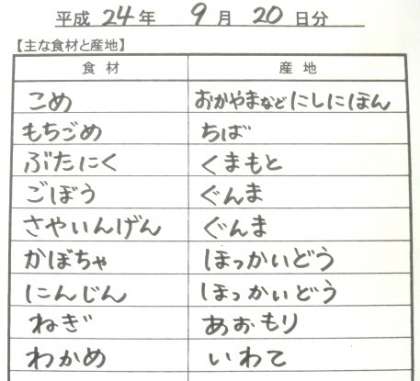 平成 24 年 9 月 20 日分
【主な食材と産地】
食材 産地
こめ おかやまなどにしにほん
もちごめ ちば
ぶたにく くまもと
ごぼう ぐんま
さやいんげん ぐんま
かぼちゃ ほっかいどう
にんじん ほっかいどう
ねぎ あおもり
わかめ いわて